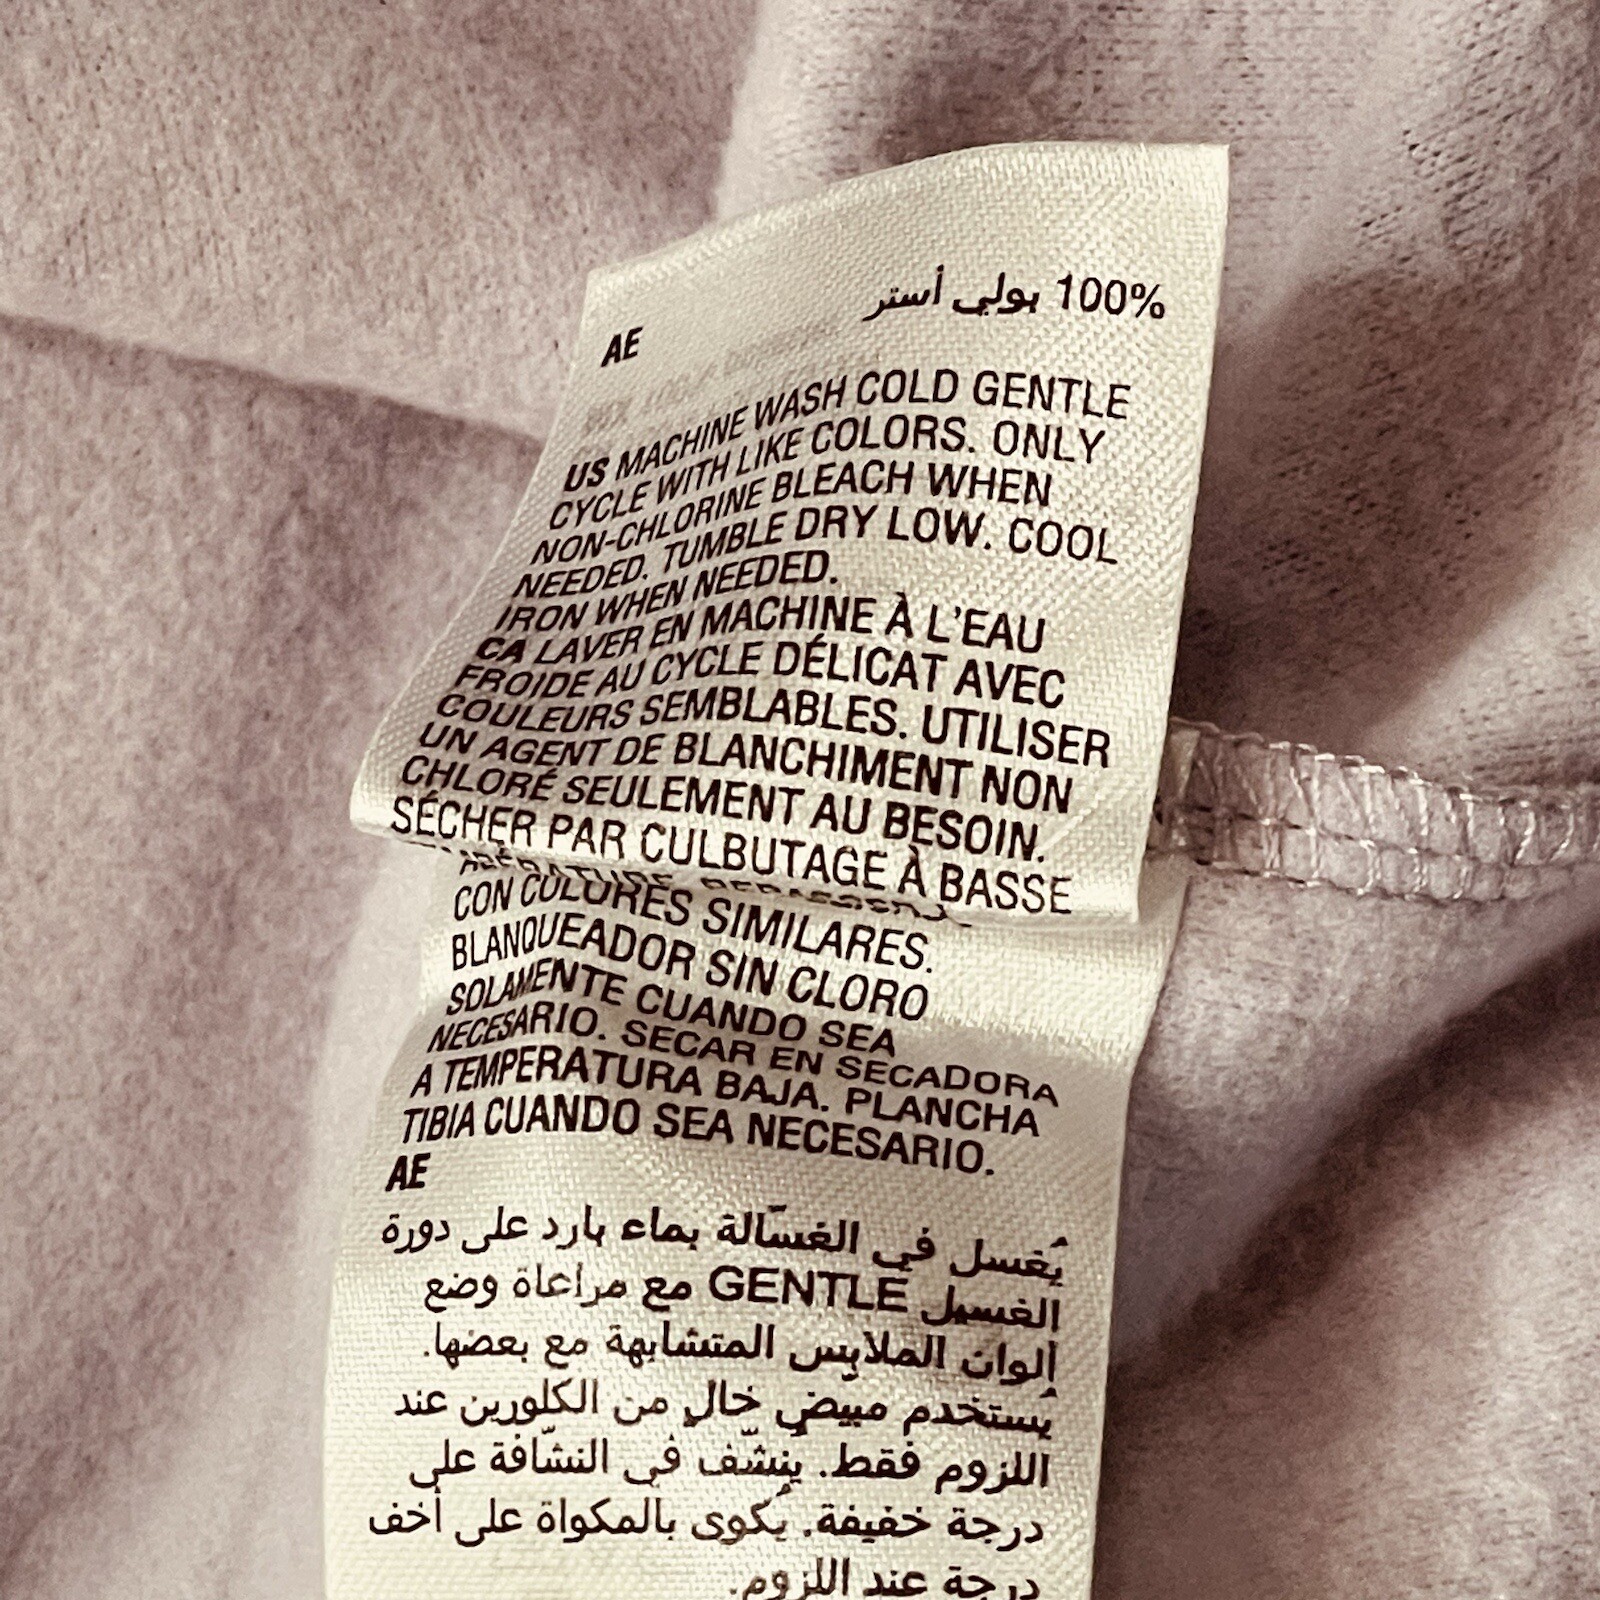 100% بولي أستر
AE
US MACHINE WASH COLD GENTLE
CYCLE WITH LIKE COLORS. ONLY
NON-CHLORINE BLEACH WHEN
NEEDED. TUMBLE DRY LOW. COOL
IRON WHEN NEEDED.
CA LAVER EN MACHINE À L'EAU
FROIDE AU CYCLE DÉLICAT AVEC
COULEURS SEMBLABLES. UTILISER
UN AGENT DE BLANCHIMENT NON
CHLORÉ SEULEMENT AU BESOIN.
SÉCHER PAR CULBUTAGE À BASSE
CON COLORES SIMILARES.
BLANQUEADOR SIN CLORO
SOLAMENTE CUANDO SEA
NECESARIO. SECAR EN SECADORA
A TEMPERATURA BAJA. PLANCHA
TIBIA CUANDO SEA NECESARIO.
AE
يُغسل في الغسّالة بماء بارد على دورة
الغسيل GENTLE مع مراعاة وضع
ألوان الملابس المتشابهة مع بعضها.
يُستخدم مبيّض خالٍ من الكلورين عند
اللزوم فقط. يُنشّف في النشّافة على
درجة خفيفة. يُكوى بالمكواة على أخف
درجة عند اللزوم.